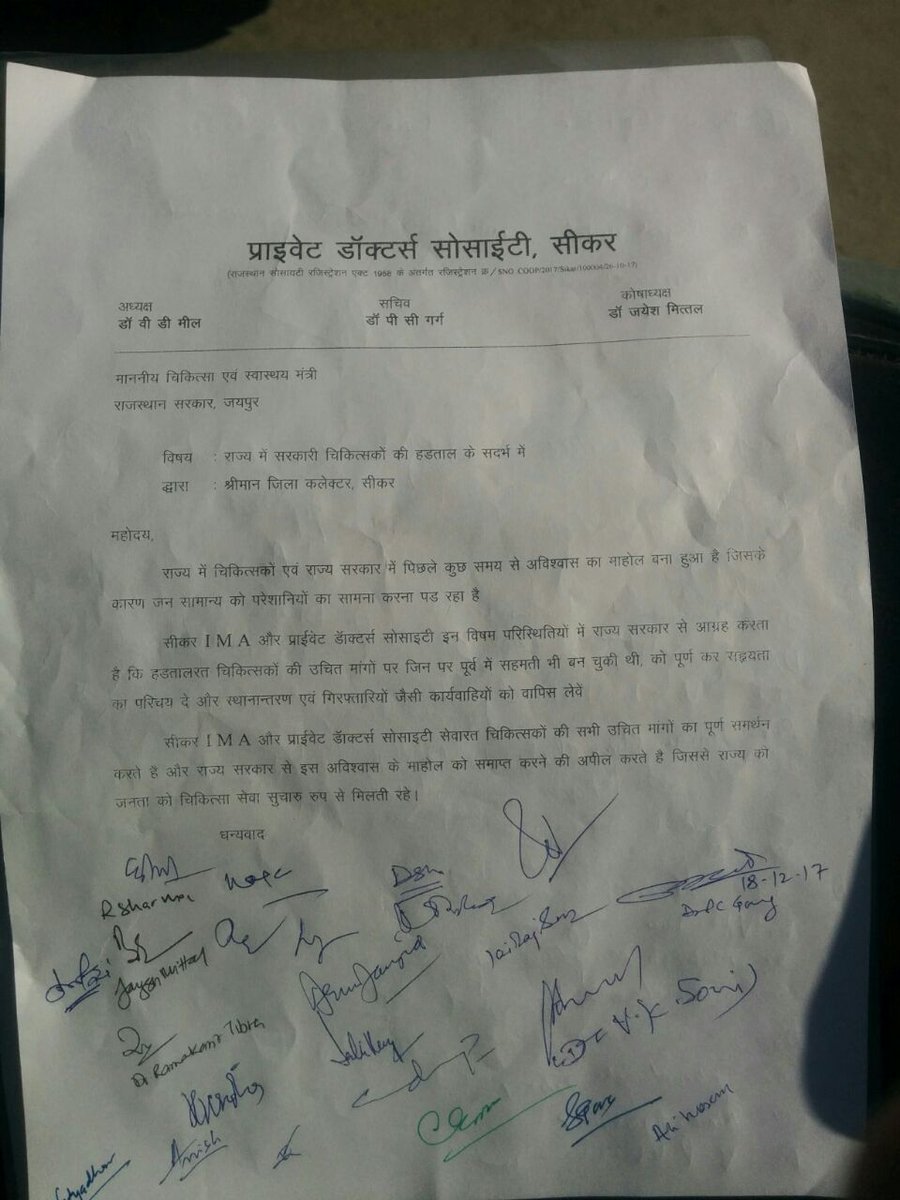 प्राइवेट डॉक्टर्स सोसाईटी, सीकर
(राजस्थान सोसायटी रजिस्ट्रेशन एक्ट 1958 के अंतर्गत रजिस्ट्रेशन क्र/ SNO COOP/2017/Sikar/100004/26-10-17)
अध्यक्ष सचिव कोषाध्यक्ष
डॉ वी डी मील डॉ पी सी गर्ग डॉ जयेश मित्तल
माननीय चिकित्सा एवं स्वास्थय मंत्री
राजस्थान सरकार, जयपुर
विषय : राज्य में सरकारी चिकित्सकों की हडताल के सदर्भ में
द्वारा : श्रीमान जिला कलेक्टर, सीकर
महोदय,
राज्य में चिकित्सकों एवं राज्य सरकार में पिछले कुछ समय से अविश्वास का माहोल बना हुआ है जिसके
कारण जन सामान्य को परेशानियों का सामना करना पड रहा है
सीकर IMA और प्राईवेट डॅाक्टर्स सोसाइटी इन विषम परिस्थितियों में राज्य सरकार से आग्रह करता
है कि हडतालरत चिकित्सकों की उचित मांगों पर जिन पर पूर्व में सहमती भी बन चुकी थी, को पूर्ण कर सहृयता
का परिचय दे और स्थानान्तरण एवं गिरफ्तारियों जैसी कार्यवाहियों को वापिस लेवें
सीकर IMA और प्राईवेट डॅाक्टर्स सोसाइटी सेवारत चिकित्सकों की सभी उचित मांगों का पूर्ण समर्थन
करते है और राज्य सरकार से इस अविश्वास के माहोल को समाप्त करने की अपील करते है जिससे राज्य की
जनता को चिकित्सा सेवा सुचारु रुप से मिलती रहे।
धन्यवाद
R Sharma
18-12-17
Dr PC Garg
Jayesh Mittal
Dr Ramakant Tibra
V.K. Soni)
Amish